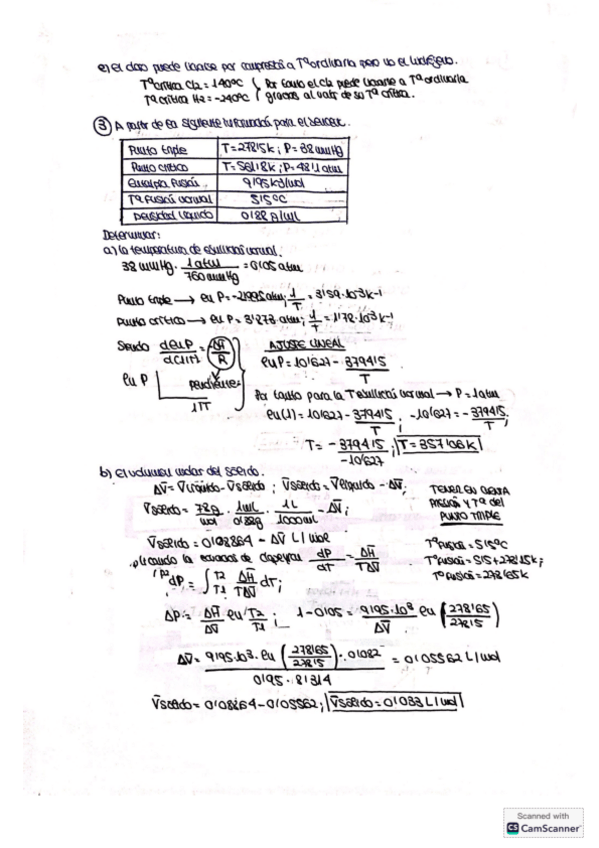 e) El cloro puede licuarse por compresión a Tª ordinaria pero no el hidrógeno.
Tª crítica Cl2 = 140ºC
Tª crítica H2 = -240ºC
Por tanto el Cl2 puede licuarse a Tª ordinaria
gracias al valor de su Tª crítica.
③ A partir de la siguiente información para el benceno.
Punto triple T = 278'15K ; P = 38 mmHg
Punto crítico T = 561'8K ; P = 48'1 atm
Entalpía fusión 9'95 kJ/mol
Tª fusión normal 5'5ºC
Densidad líquido 0'88 g/mL
Determinar:
a) la temperatura de ebullición normal.
38 mmHg · 1 atm / 760 mmHg = 0'05 atm
Punto triple → ln P = -2'995 atm ; 1/T = 3'59·10⁻³ K⁻¹
Punto crítico → ln P = 3'873 atm ; 1/T = 1'78·10⁻³ K⁻¹
Siendo d ln P / d(1/T) = ΔH/R
pendiente
ln P
1/T
AJUSTE LINEAL
ln P = 10'627 - 3794'5/T
Por tanto para la T ebullición normal → P = 1 atm
ln(1) = 10'627 - 3794'5/T ; -10'627 = -3794'5/T ;
T = -3794'5/-10'627 ; T = 357'06 K
b) El volumen molar del sólido.
ΔV̄ = V̄líquido - V̄sólido ; V̄sólido = V̄líquido - ΔV̄ ;
V̄sólido = 78g/mol · 1mL/0'88g · 1L/1000mL - ΔV̄ ;
TENER EN CUENTA
PRESIÓN Y Tª DEL
PUNTO TRIPLE
V̄sólido = 0'08864 - ΔV̄ L/mol
Aplicando la ecuación de Clapeyron dP/dT = ΔH̄/TΔV̄
Tª fusión = 5'5ºC
Tª fusión = 5'5 + 278'15K ;
Tª fusión = 278'65K
dP = ∫ T2 T1 ΔH̄/TΔV̄ dT ;
ΔP = ΔH̄/ΔV̄ ln T2/T1 ; 1 - 0'05 = 9'95·10³/ΔV̄ ln (278'65/278'15)
ΔV̄ = 9'95·10³ · ln (278'65/278'15) · 0'082 / 0'95 · 8'314 = 0'05562 L/mol
V̄sólido = 0'08864 - 0'05562 ; V̄sólido = 0'033 L/mol
Scanned with
CS CamScanner